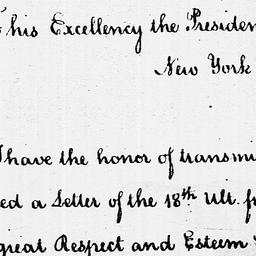 his Excellency the Presiden
New York
I have the honor of transmi
ed a Letter of the 18th Ult. f
great Respect and Esteem